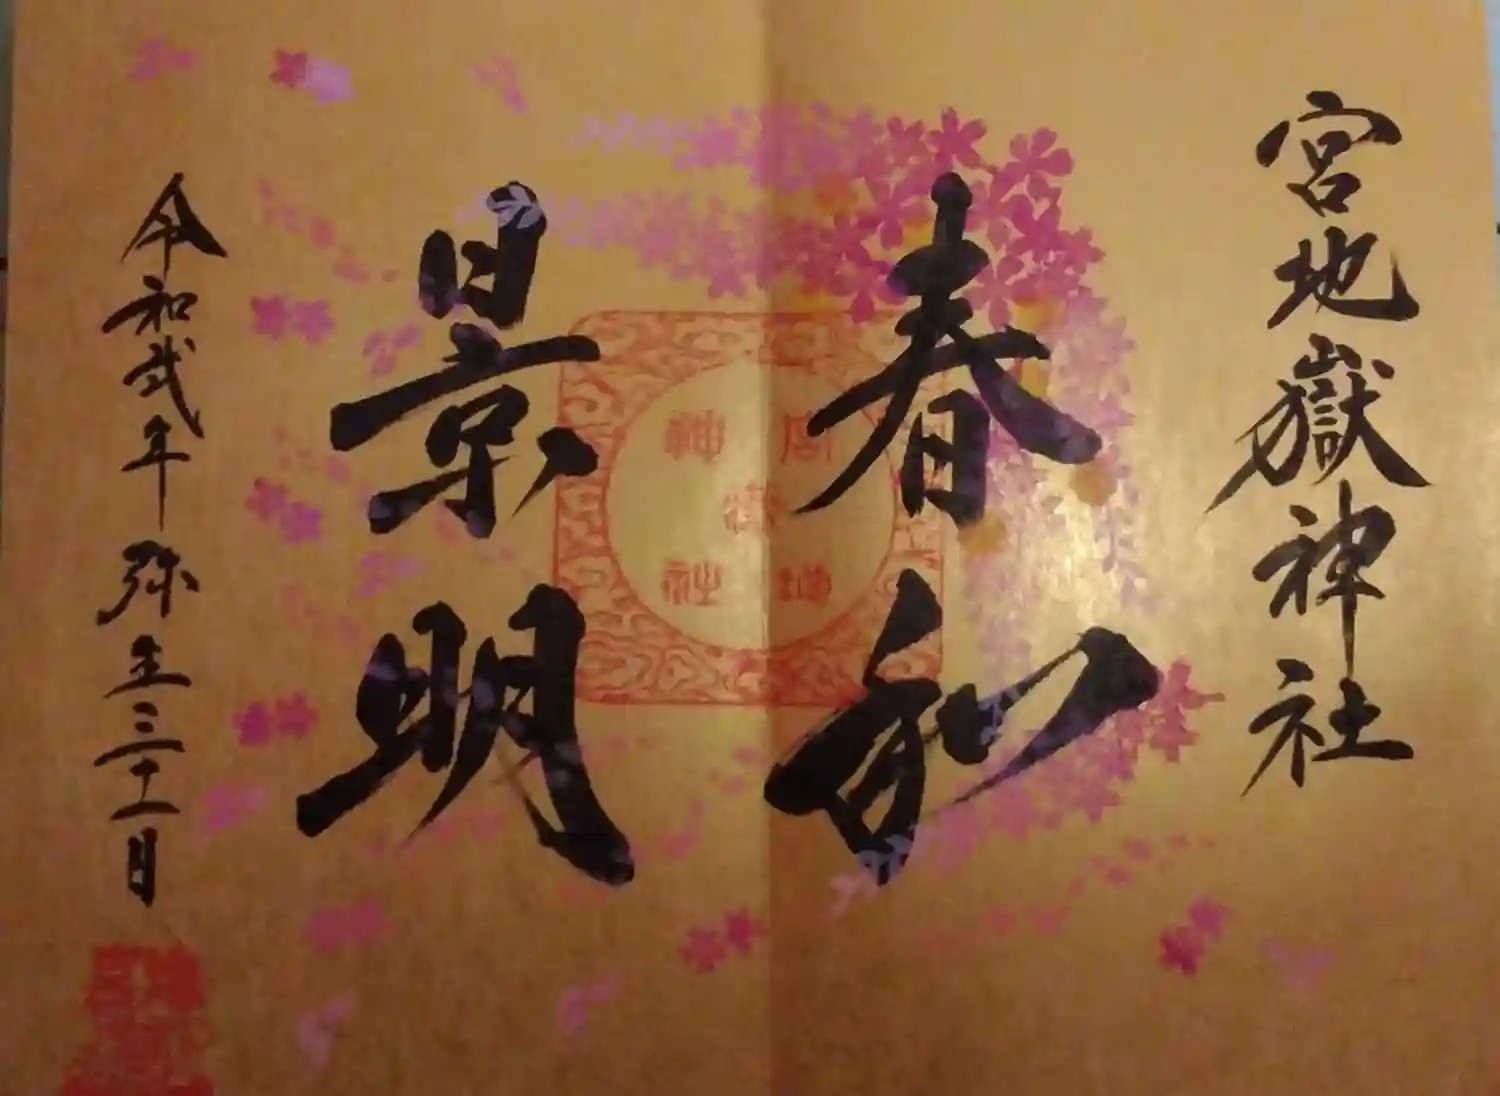 宮地嶽神社
春和
景明
宮地
嶽
神社
令和弐年弥生三十一日